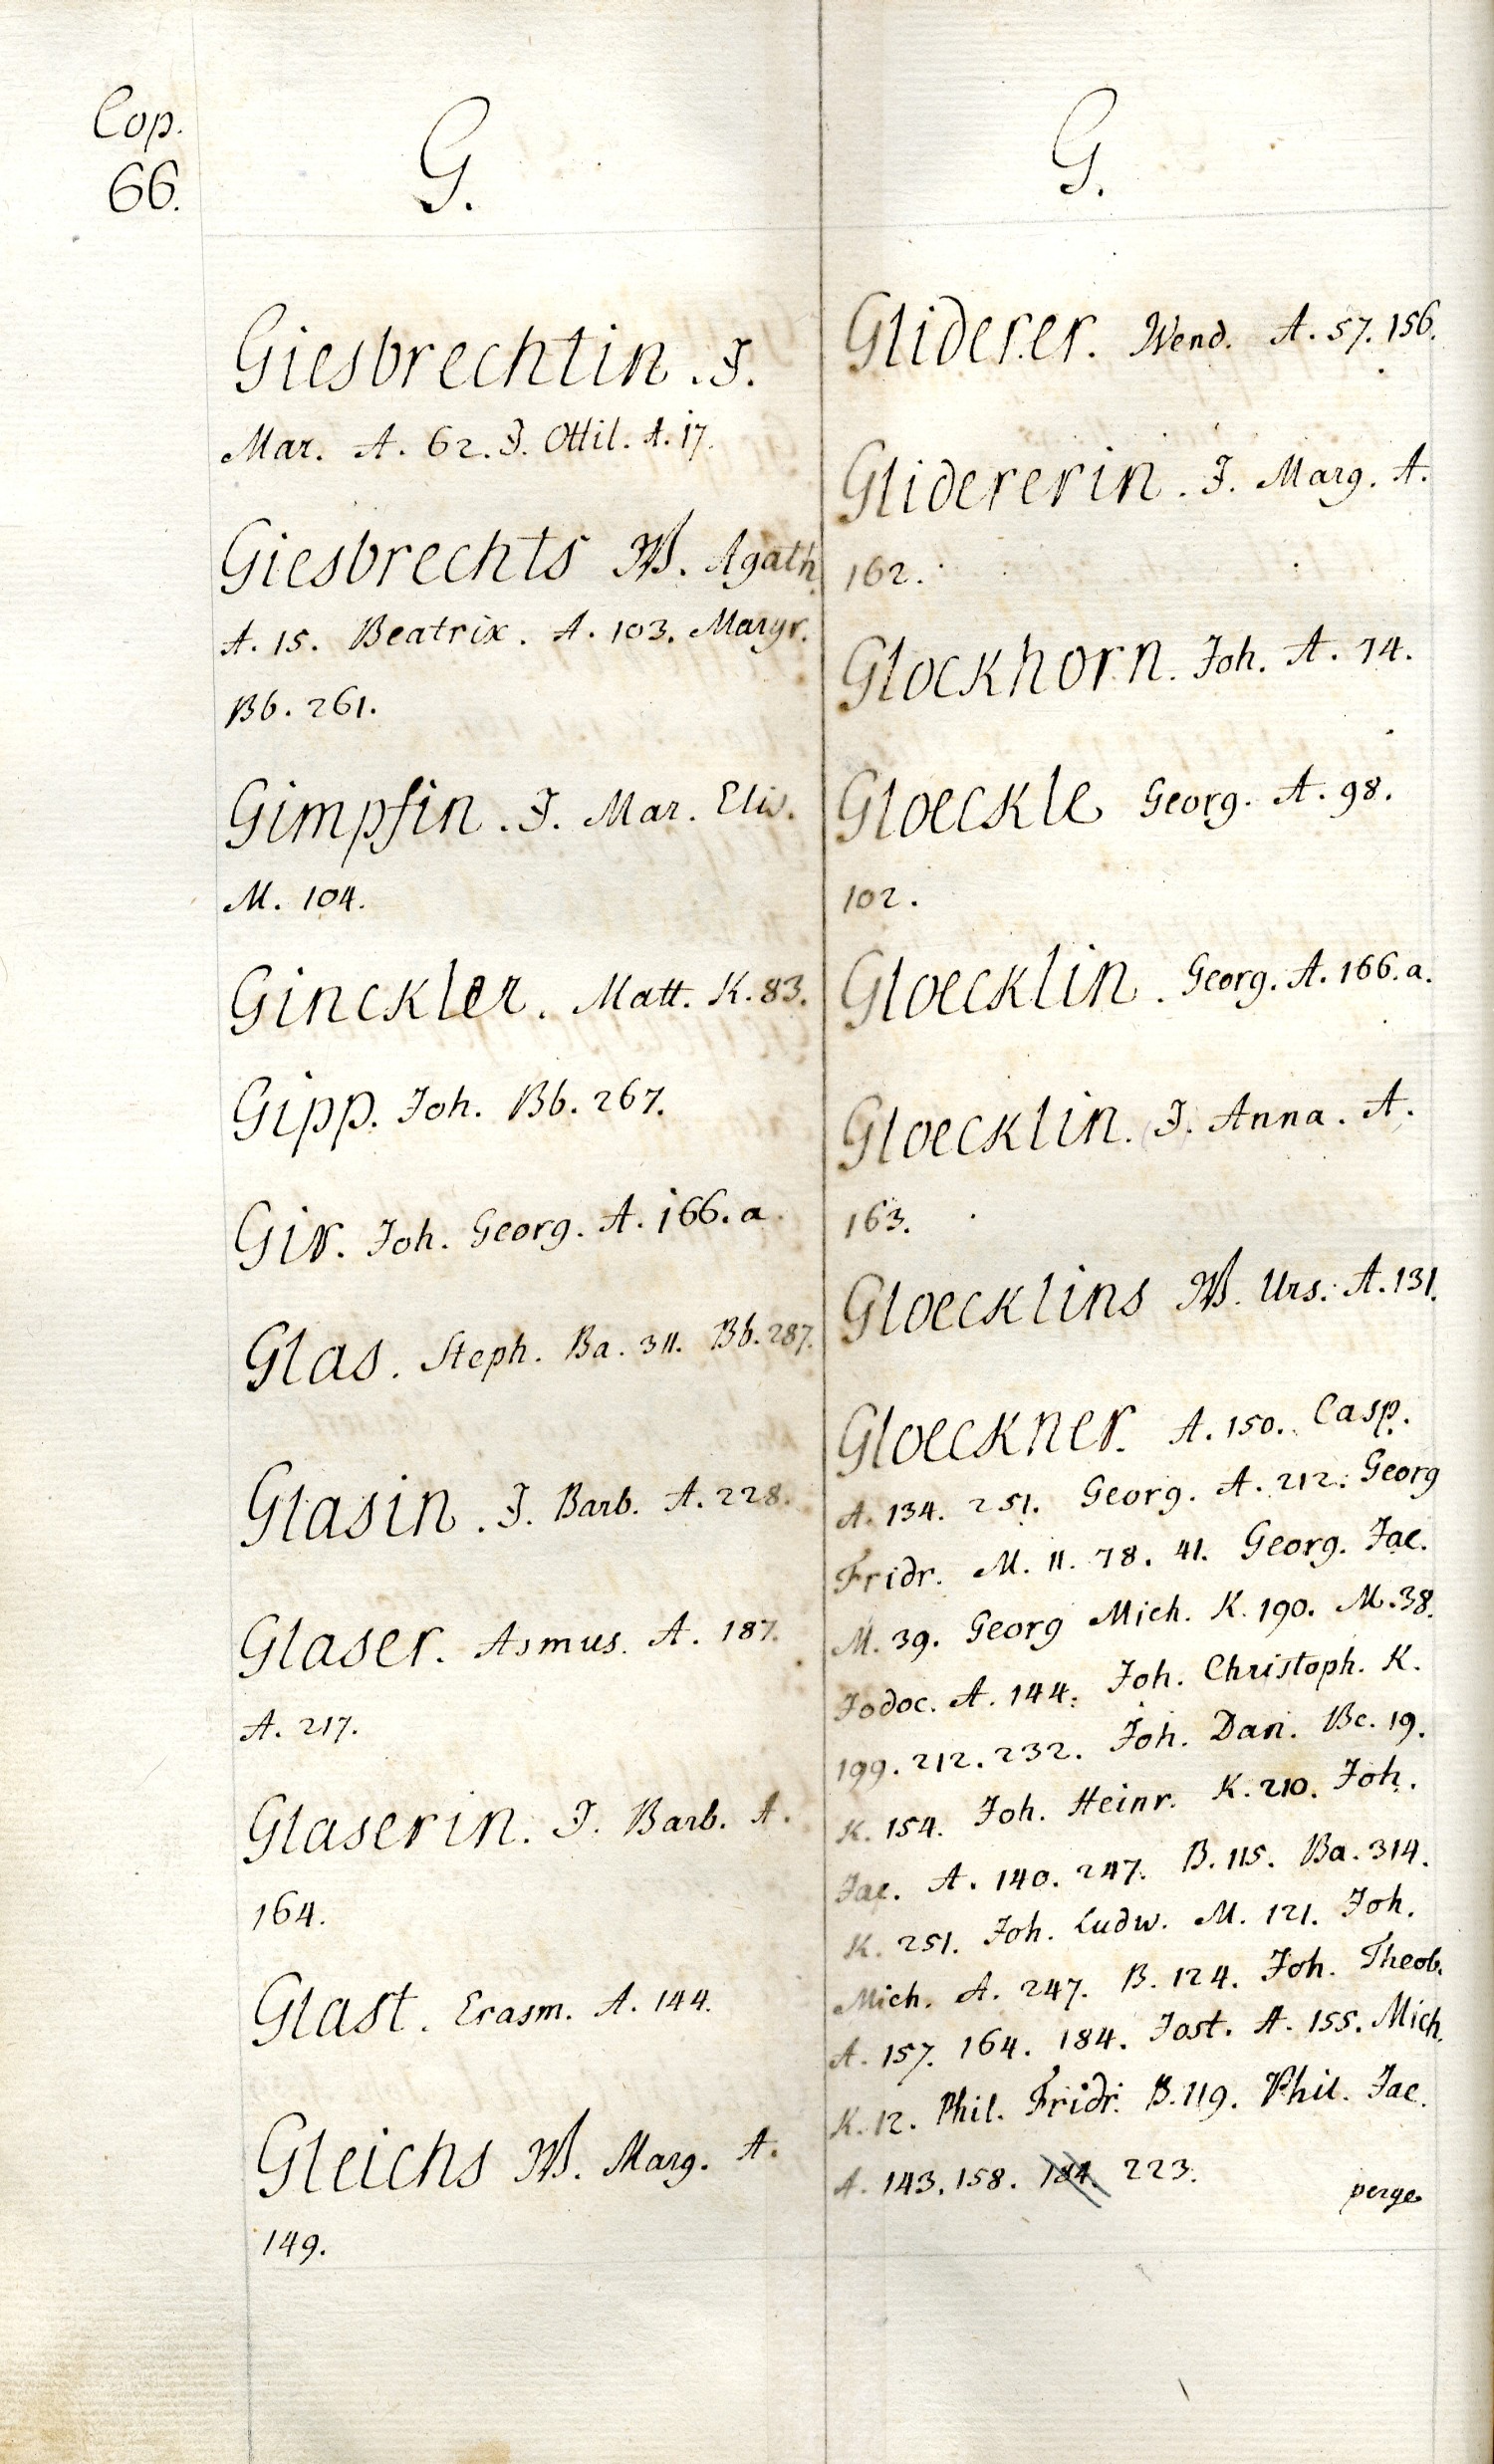 Cop.
66.
G.
Giesbrechtin. J.
Mar. A. 62. J. Ottil. A. 17.
Giesbrechts W. Agath.
A. 15. Beatrix. A. 103. Margr.
Bb. 261.
Gimpfin. J. Mar. Elis.
M. 104.
Ginckler. Matt. K. 83.
Gipp. Joh. Bb. 267.
Gir. Joh. Georg. A. 166. a.
Glas. Steph. Ba. 311. Bb. 287.
Glasin. J. Barb. A. 228.
Glaser. Asmus. A. 187.
A. 217.
Glaserin. J. Barb. A.
164.
Glast. Erasm. A. 144.
Gleichs W. Marg. A.
149.
G.
Gliderer. Wend. A. 57. 156.
Glidererin. J. Marg. A.
162.
Glockhorn. Joh. A. 74.
Gloeckle Georg. A. 98.
102.
Gloecklin. Georg. A. 166. a.
Gloecklin. J. Anna. A.
163.
Gloecklins W. Urs. A. 131.
Gloeckner. A. 150. Casp.
A. 134. 251. Georg. A. 212. Georg
Fridr. M. 11. 78. 41. Georg. Jac.
M. 39. Georg Mich. K. 190. M. 38.
Jodoc. A. 144. Joh. Christoph. K.
199. 212. 232. Joh. Dan. Bc. 19.
K. 154. Joh. Heinr. K. 210. Joh.
Jac. A. 140. 247. B. 115. Ba. 314.
K. 251. Joh. Ludw. M. 121. Joh.
Mich. A. 247. B. 124. Joh. Theob.
A. 157. 164. 184. Jost. A. 155. Mich.
K. 12. Phil. Fridr. B. 119. Phil. Jac.
A. 143. 158. 184. 223.
perge